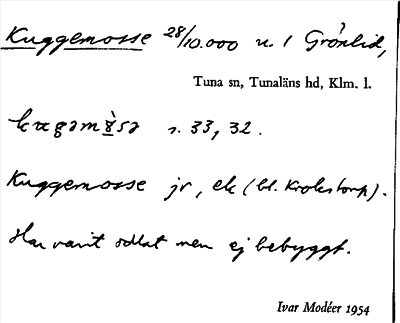 Kuggemosse 28/10.000 n. 1 Grönlid,
Tuna sn, Tunaläns hd, Klm. l.
s. 33, 32.
Kuggemosse jr, ek (bl. Krokstorp).
Har varit odlat men ej bebyggt.
Ivar Modéer 1954